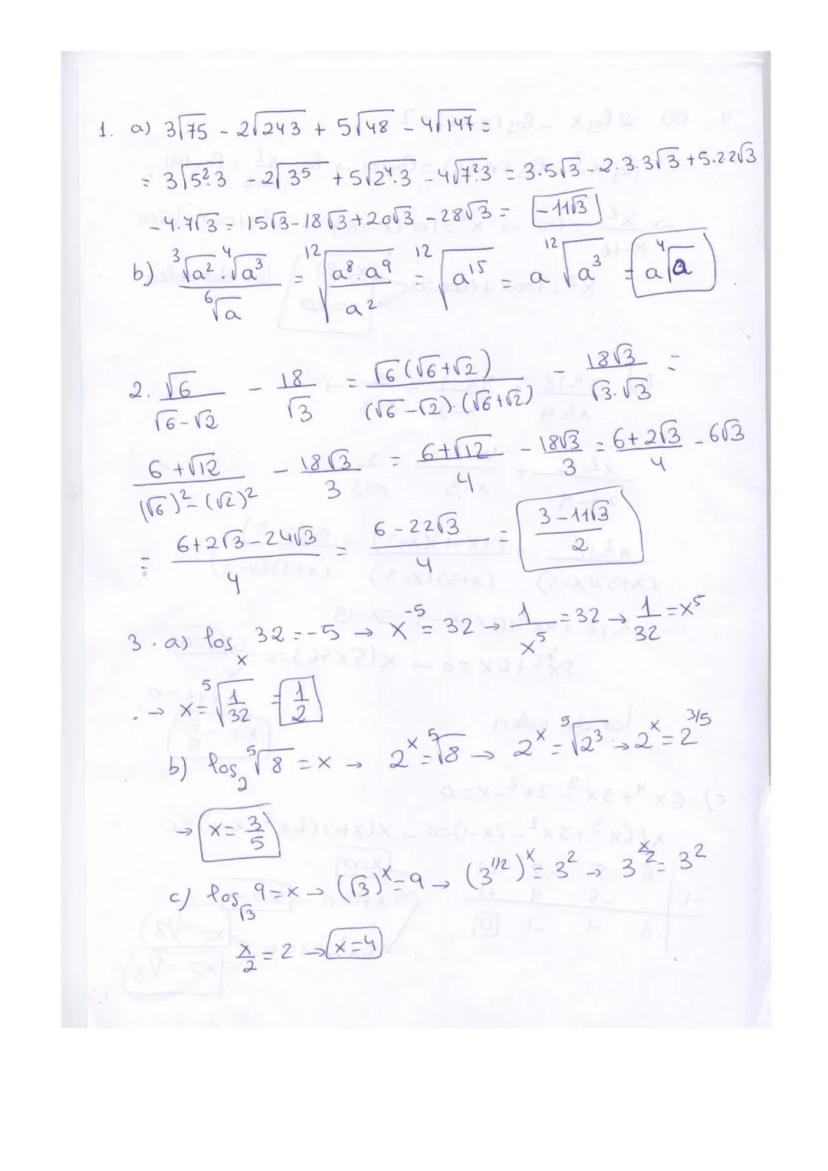 1. a) 3√75 - 2√243 + 5√48 - 4√147 =
= 3√(5²·3) - 2√(3⁵) + 5√(2⁴·3) - 4√(7²·3) = 3·5√3 - 2·3·3√3 + 5·2·2√3
- 4·7√3 = 15√3 - 18√3 + 20√3 - 28√3 = -11√3
b) (³√a² · ⁴√a³)/(⁶√a) = ¹²√((a⁸·a⁹)/a²) = ¹²√(a¹⁵) = a ¹²√(a³) = a ⁴√a
2. √6/(√6-√2) - 18/√3 = (√6(√6+√2))/((√6-√2)·(√6+√2)) - 18√3/(√3·√3) =
(6+√12)/((√6)²-(√2)²) - 18√3/3 = (6+√12)/4 - 18√3/3 = (6+2√3)/4 - 6√3
= (6+2√3-24√3)/4 = (6-22√3)/4 = (3-11√3)/2
3. a) logₓ 32 = -5 → x⁻⁵ = 32 → 1/x⁵ = 32 → 1/32 = x⁵
→ x = ⁵√(1/32) = 1/2
b) log₂ ⁵√8 = x → 2ˣ = ⁵√8 → 2ˣ = ⁵√(2³) → 2ˣ = 2^(3/5)
→ x = 3/5
c) log_√3 9 = x → (√3)ˣ = 9 → (3^(1/2))ˣ = 3² → 3^(x/2) = 3²
x/2 = 2 → x = 4